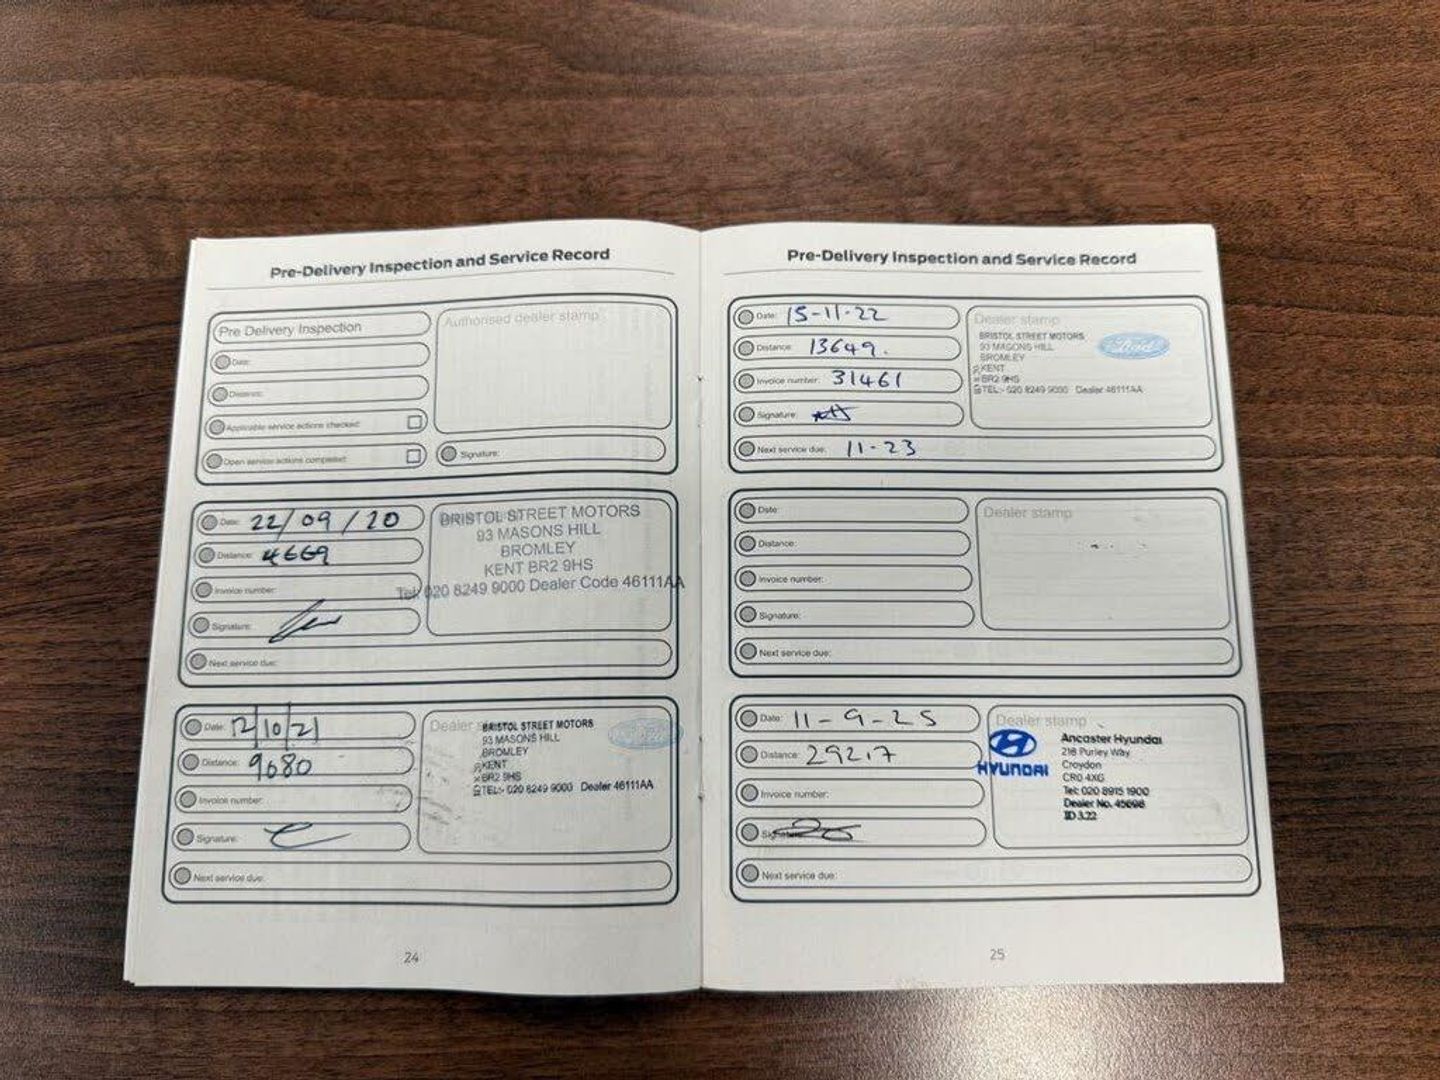 Pre-Delivery Inspection and Service Record
Pre Delivery Inspection
Date:
Distance:
Applicable service actions checked:
Open service actions completed:
Authorised dealer stamp
Signature:
Date: 22/09/20
Distance: 4669
Invoice number:
Signature:
Next service due:
BRISTOL STREET MOTORS
93 MASONS HILL
BROMLEY
KENT BR2 9HS
Tel: 020 8249 9000 Dealer Code 46111AA
Date: 12/10/21
Distance: 9680
Invoice number:
Signature:
Next service due:
Dealer
BRISTOL STREET MOTORS
93 MASONS HILL
BROMLEY
KENT
BR2 9HS
TEL:- 020 8249 9000 Dealer 46111AA
24
Pre-Delivery Inspection and Service Record
Date: 15-11-22
Distance: 13649.
Invoice number: 31461
Signature:
Next service due: 11-23
Dealer stamp
BRISTOL STREET MOTORS
93 MASONS HILL
BROMLEY
KENT
BR2 9HS
TEL:- 020 8249 9000 Dealer 46111AA
Ford
Date:
Distance:
Invoice number:
Signature:
Next service due:
Dealer stamp
Date: 11-9-25
Distance: 29217
Invoice number:
Signature:
Next service due:
Dealer stamp
HYUNDAI
Ancaster Hyundai
218 Purley Way
Croydon
CR0 4XG
Tel: 020 8915 1900
25